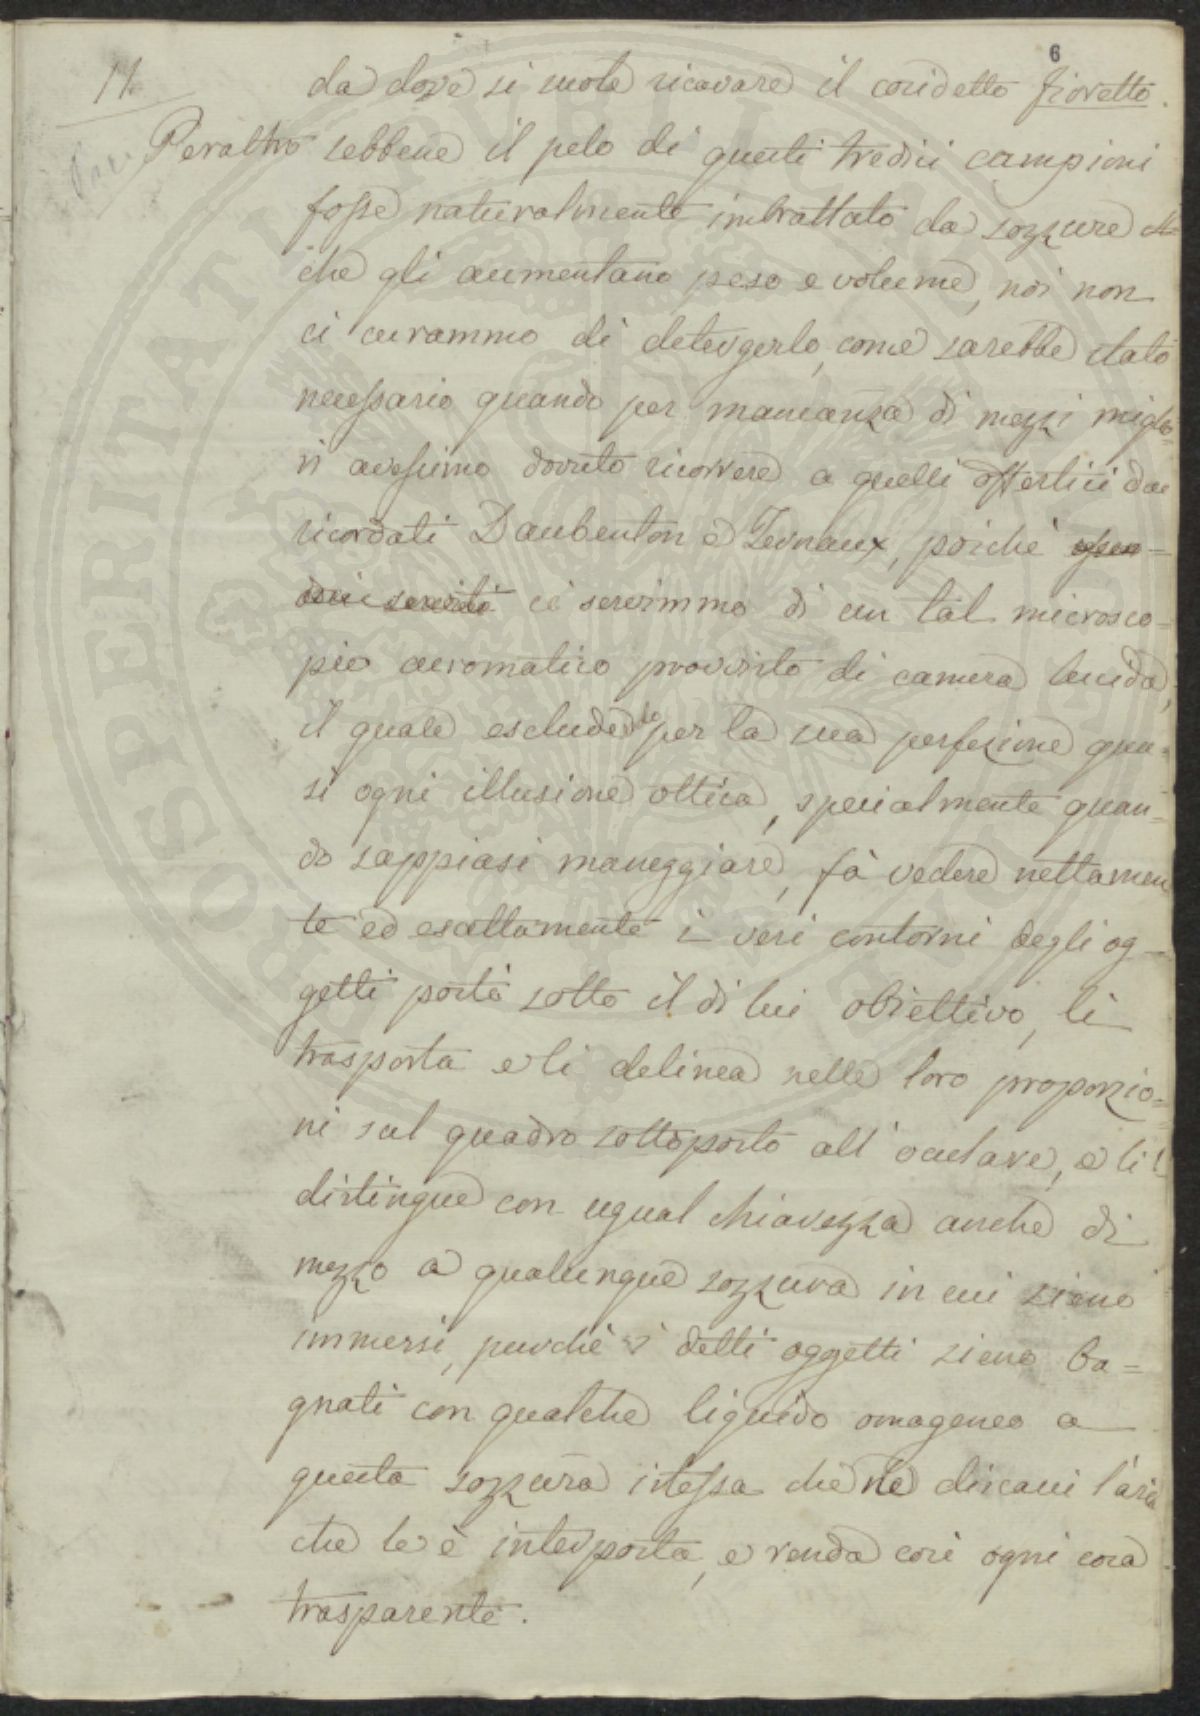 6
11.
da dove si suole ricavare il cosidetto fioretto.
Peraltro sebbene il pelo di questi tredici campioni
fosse naturalmente imbrattato da sozzure
che gli aumentano peso e volume, noi non
ci curammo di detergerlo, come sarebbe stato
necessario quando per mancanza di mezzi miglio=
ri avessimo dovuto ricorrere a quelli offertici dai
ricordati Daubenton e Ternaux, poichè essen=
doci serviti ci servimmo di un tal microsco=
pio acromatico provvisto di camera lucida,
il quale escludendo per la sua perfezione qua=
si ogni illusione ottica, specialmente quan=
do sappiasi maneggiare, fà vedere nettamen
te ed esattamente i veri contorni degli og=
getti posti sotto il di lui obiettivo, li
trasporta e li delinea nelle loro proporzio=
ni sul quadro sottoposto all'oculare, e li
distingue con ugual chiarezza anche di
mezzo a qualunque sozzura in cui sieno
immersi, purchè i detti oggetti sieno ba=
gnati con qualche liquido omogeneo a
questa sozzura istessa che ne discacci l'aria
che le è interposta, e renda così ogni cosa
trasparente.
PROSPERITATI PUBLICAE AUGENDAE